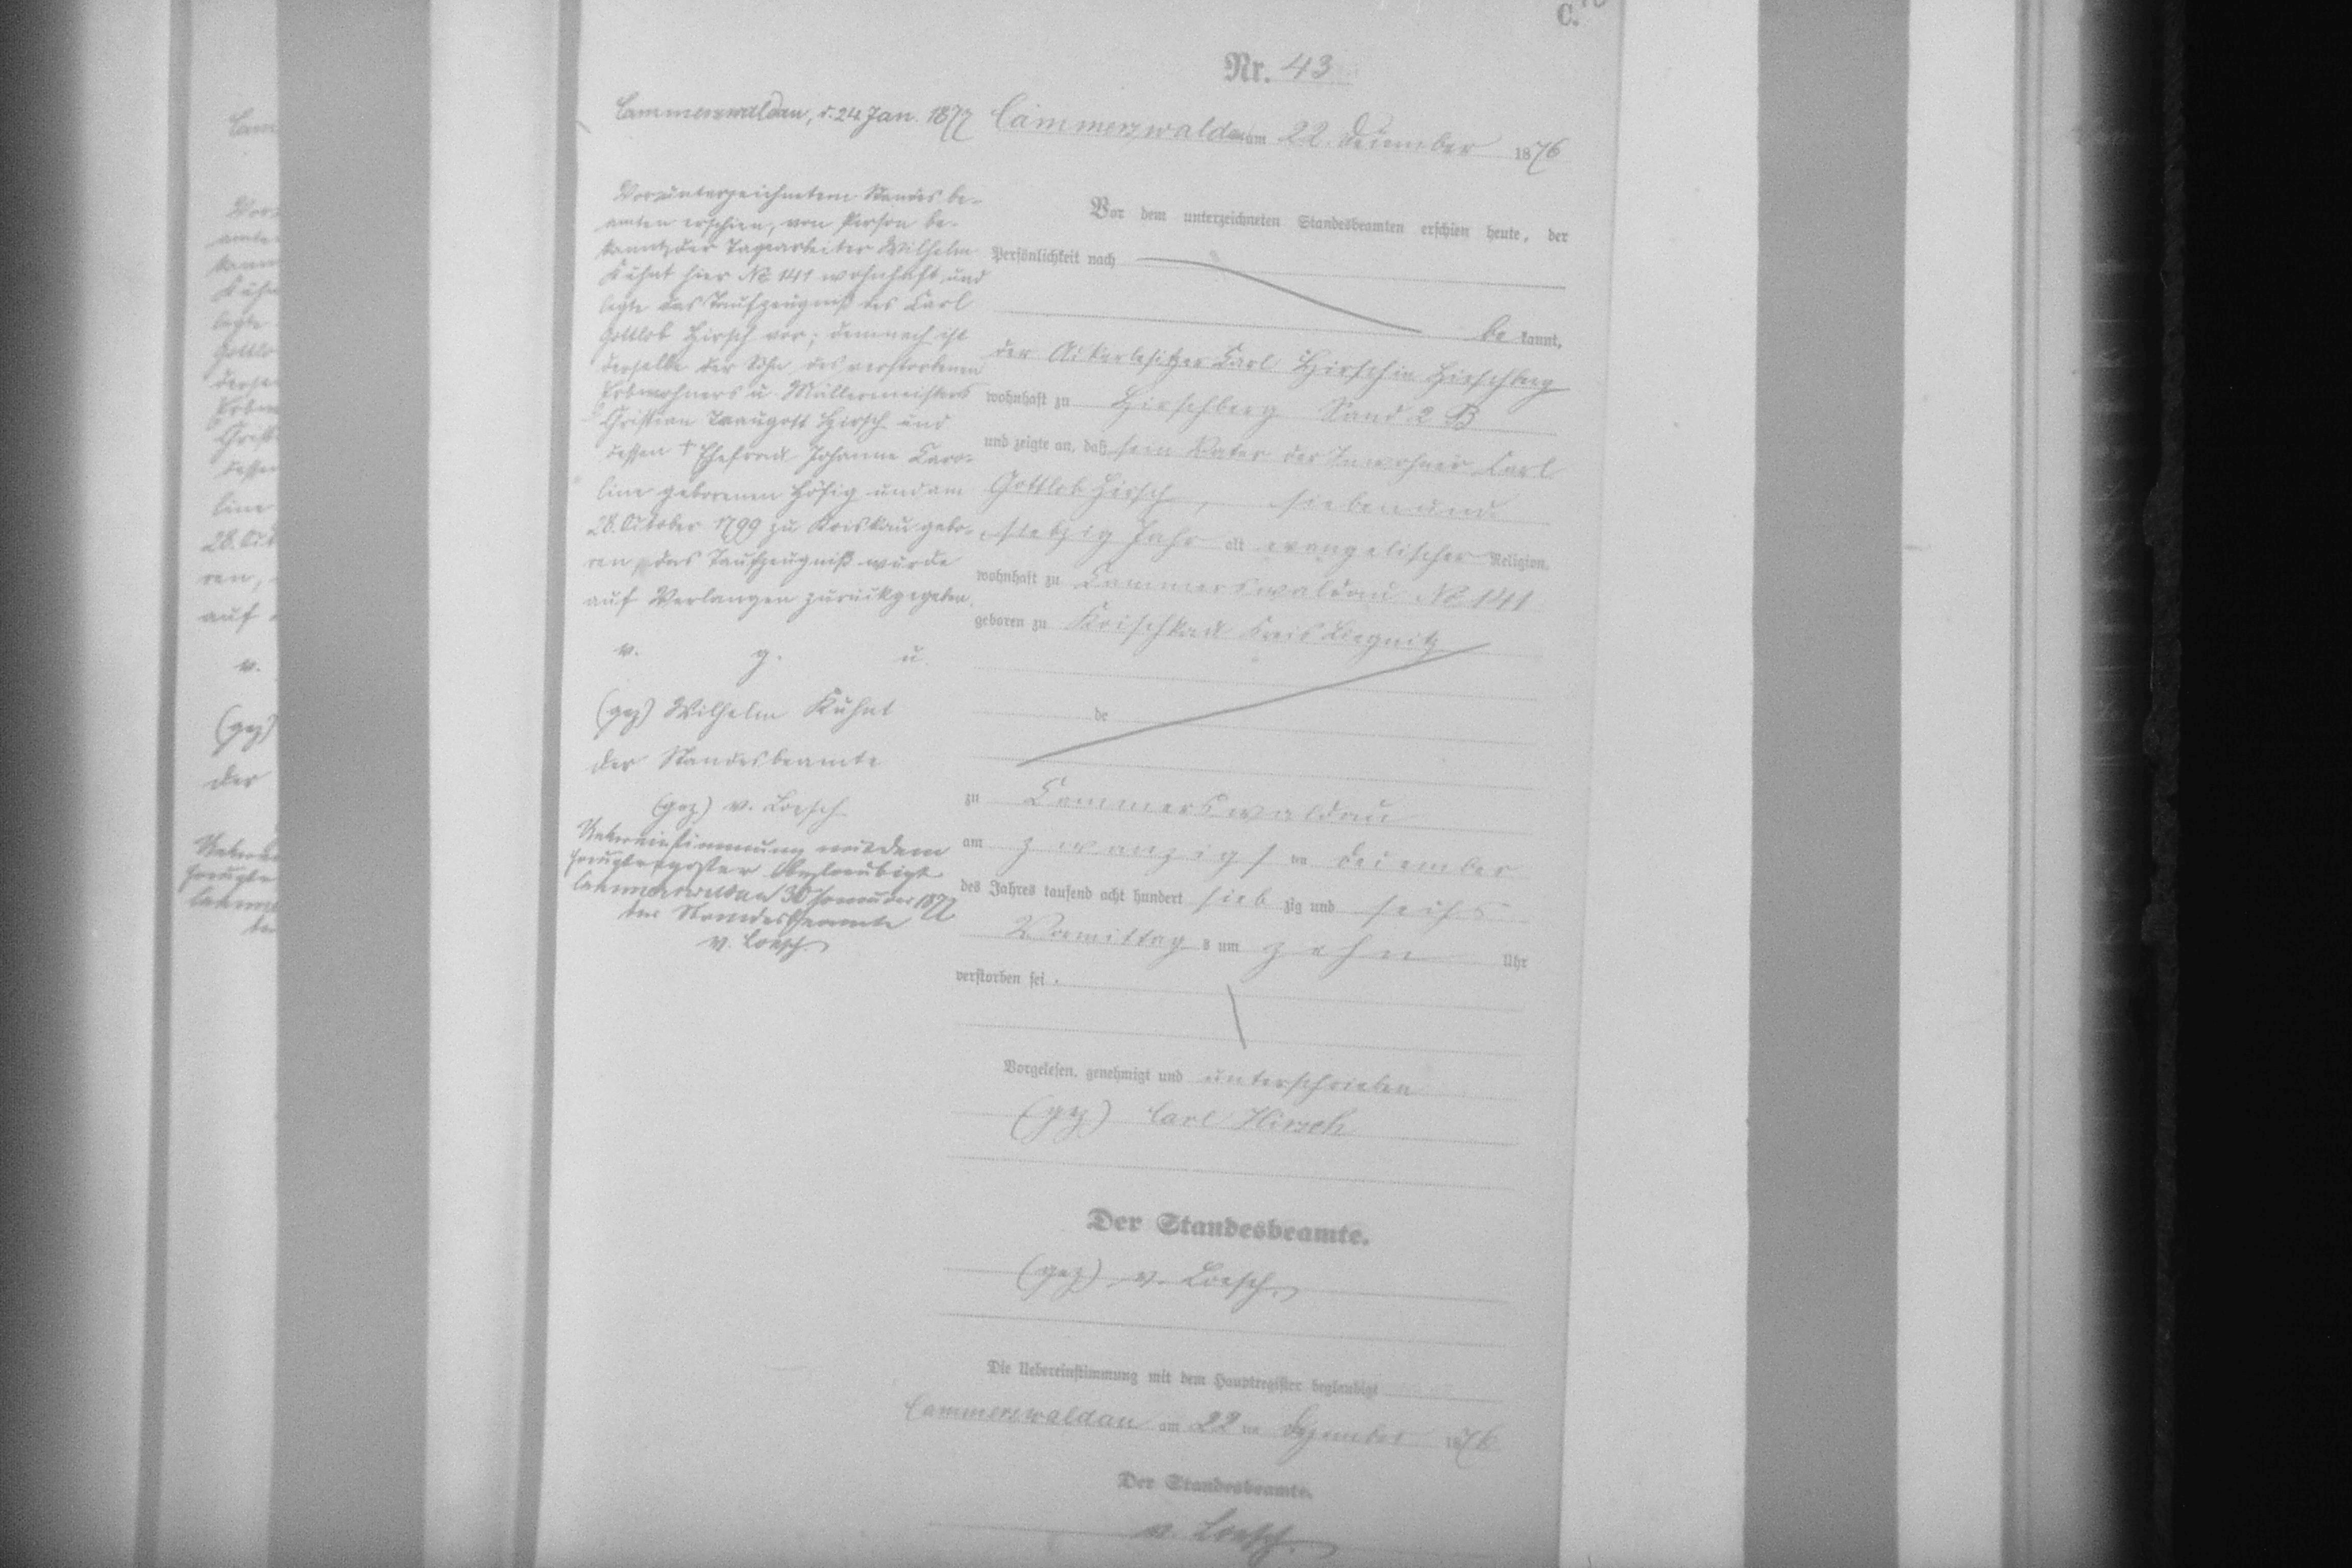 C.
Nr. 43
Cammerswaldau am 22. December 1876
Vor dem unterzeichneten Standesbeamten erschien heute, der
Persönlichkeit nach
be kannt,
der Ackerbesitzer Carl Hirsch in Hirschberg
wohnhaft zu Hirschberg Sand 2 B
und zeigte an, daß sein Vater der Inwohner Carl
Gottlob Hirsch, siebenund
siebzig Jahr alt evangelischer Religion,
wohnhaft zu Cammerswaldau No 141
geboren zu Koischkau Kreis Liegnitz
de
zu Cammerswaldau
am zwanzigsten December
des Jahres tausend acht hundert siebzig und sechs
Vormittags um zehn Uhr
verstorben sei.
Vorgelesen, genehmigt und unterschrieben
(gez) Carl Hirsch
Der Standesbeamte.
(gez) v. Loesch
Die Uebereinstimmung mit dem Hauptregister beglaubigt
Cammerswaldau am 22 ten Dezember 1876
Der Standesbeamte.
v. Loesch.
Cammerswaldau, d. 24 Jan. 1877
Vor unterzeichnetem Standesbe-
amten erschien, von Person be-
kannt, der Tagearbeiter Wilhelm
Kuhnt hier No 141 wohnhaft und
legte das Taufzeugniß des Carl
Gottlob Hirsch vor; demnach ist
derselbe der Sohn des verstorbenen
u. Müllermeisters
Christian Traugott Hirsch und
dessen † Ehefrau Johanne Caro-
line geborenen Hösig und am
28. Oktober 1799 zu Koiskau gebo-
ren, das Taufzeugniß wurde
auf Verlangen zurückgegeben.
v. g. u.
(gez) Wilhelm Kuhnt
der Standesbeamte
(gez) v. Loesch
Uebereinstimmung mit dem
Hauptregister beglaubigt
Cammerswaldau 30 Januar 1877
der Standesbeamte
v. Loesch.